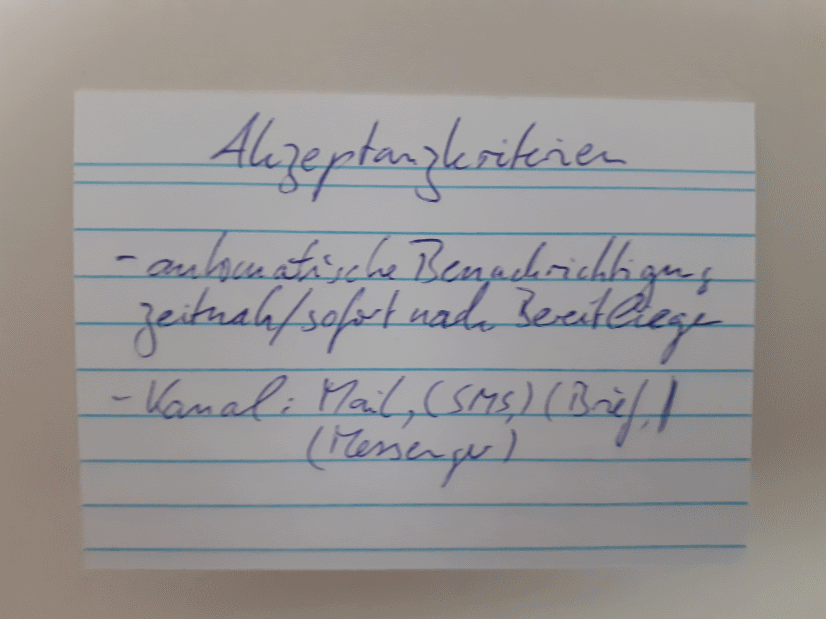 Akzeptanzkriterien
- automatische Benachrichtigung
zeitnah/sofort nach Bereitliegen
- Kanal: Mail, (SMS,) (Brief,)
(Messenger)